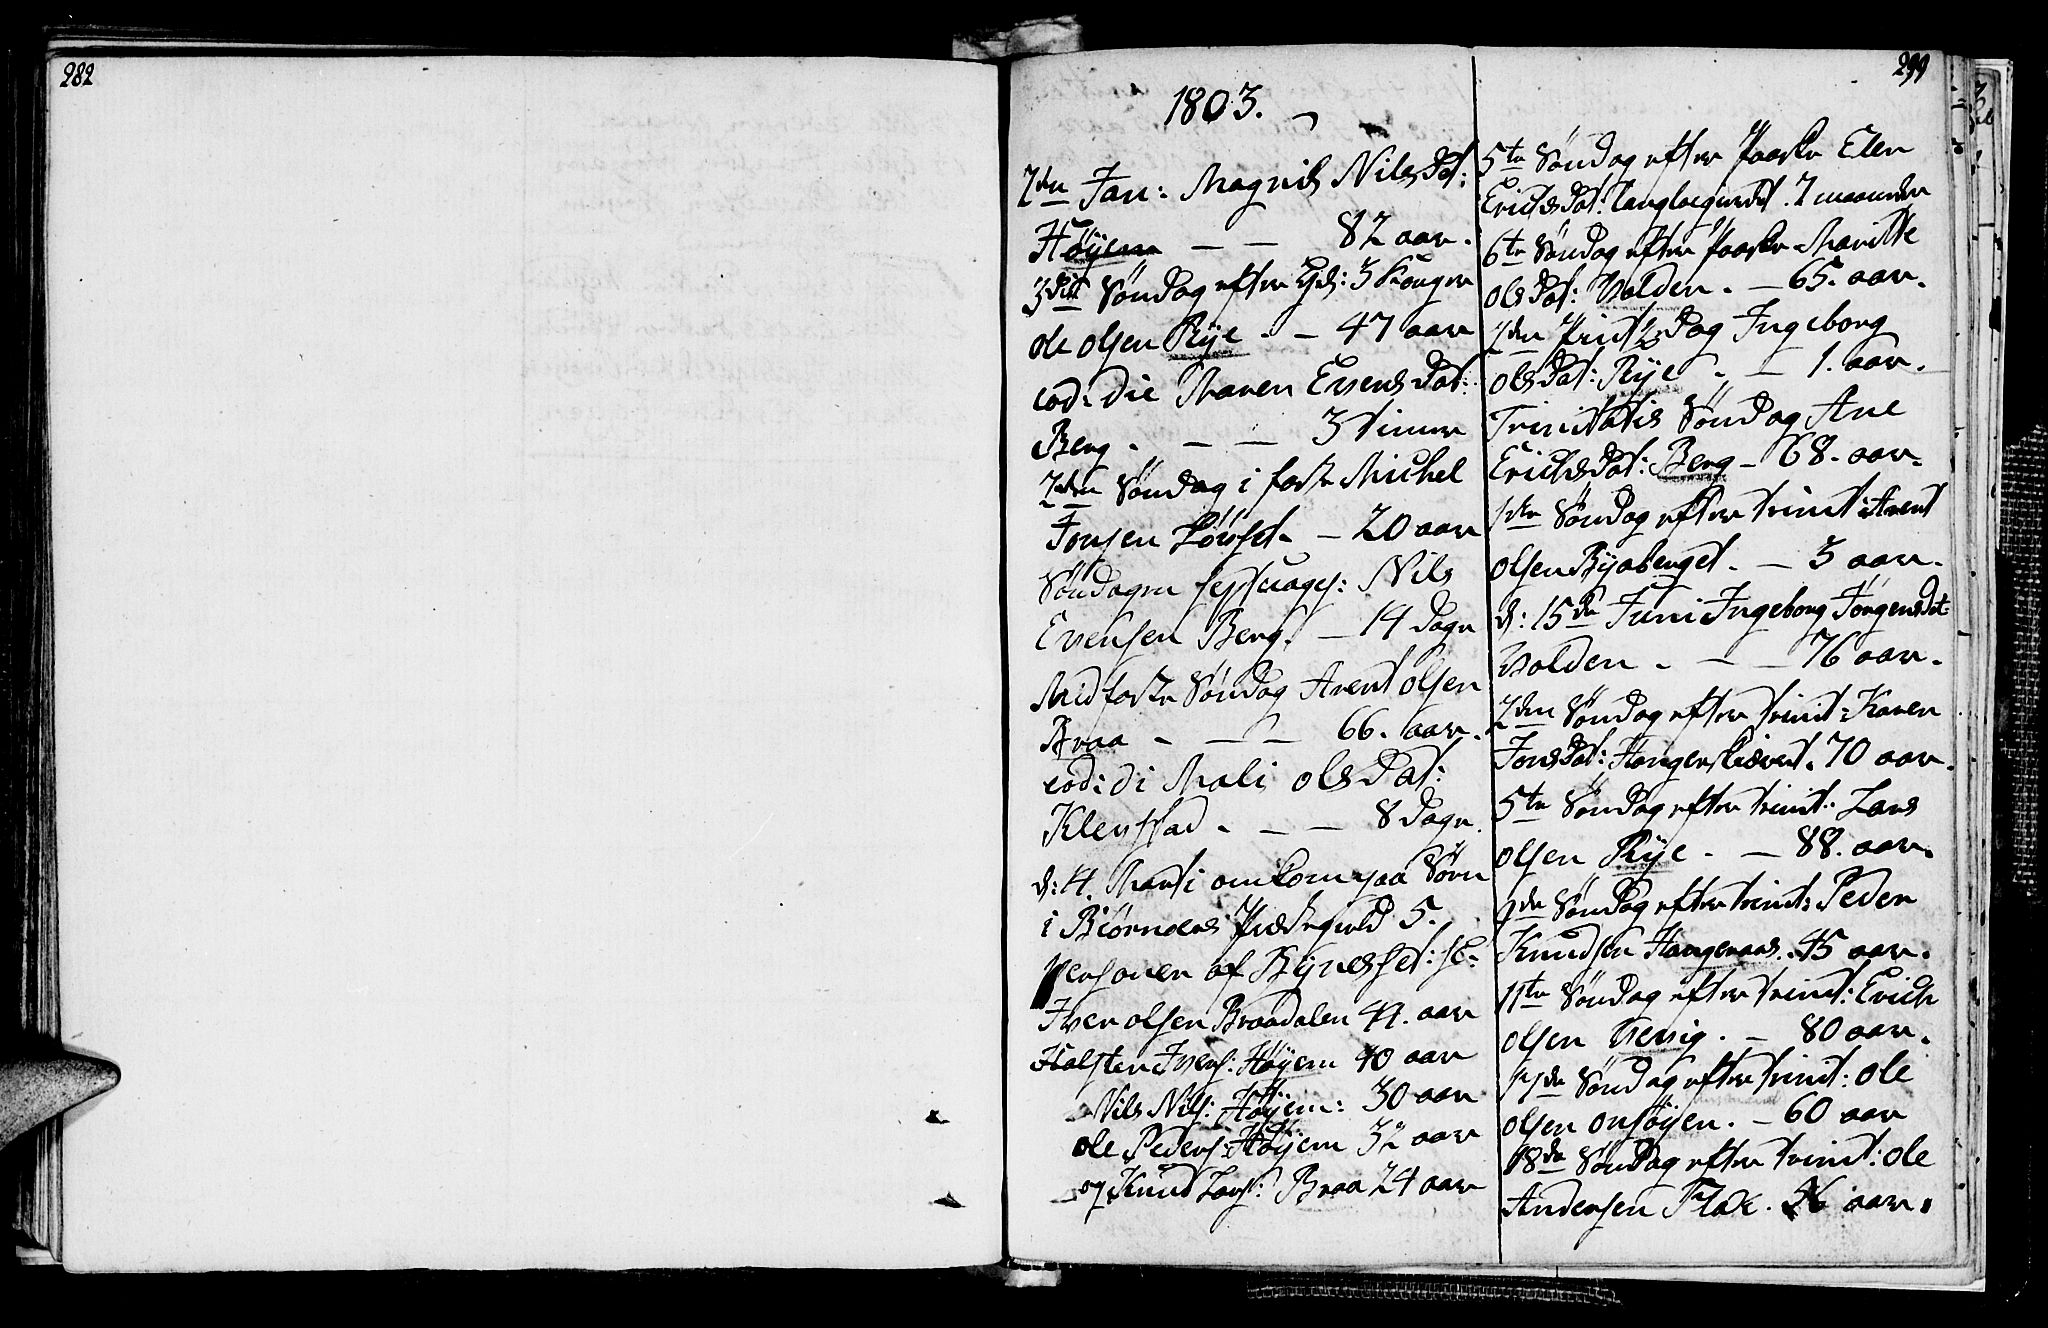 282
299
1803.
7den Jan: Magnil Nilsdat:
Høyem — — 82 aar.
3die Søndag efter Hel: 3 Konger
ole olsen Rÿe - — 47 aar
eod: die Maren Evensdat:
Berg. — — 3 timer
7den Søndag i faste Michel
Jonsen — 20 aar
Søndagen septuages: Nils
Evensen Berg. — 14 Dage
Midfaste Søndag Arent olsen
Braa - — — 66. aar.
eod: di Mali olsdat:
Klefstad. — — 8 Dage.
d: 4. Marti omkom paa Søen
i Biørnøers Præstegield 5.
Personer af Bÿnesset: sc:
Iver olsen Braadalen 44. aar
Halsten Ivers: Høÿem 40 aar
Nils Nils: Høÿem: 30 aar
ole Peders: Høÿem 32 aar
og Knud Lars: Braa 24 aar
5te Søndag efter Paaske Elen
Erichsdat: 7 maaneder
6te Søndag efter Paaske Maritte
olsdat: Volden. — 65. aar.
2den Pintzdag Ingeborg
olsdat: Rÿe. — 1. aar.
Trinitatis Søndag Ane
Erichsdat: Berg — 68. aar.
1ste Søndag efter trinit: Arent
olsen Ryeberget. — 3 aar.
d: 15de Juni Ingeborg Jørgensdat:
Volden. — — 76 aar.
2den Søndag efter trinit: Karen
Jonsdat: 70 aar.
5te Søndag efter trinit: Lars
olsen Rÿe. — 88. aar.
9de Søndag efter trinit: Peder
Knudsen Hangeraas. 45 aar.
11te Søndag efter trinit: Erich
olsen Venig. — 80 aar.
Søndag efter trinit: ole
olsen onsøÿen. — 60 aar
18de Søndag efter trinit: ole
Andersen Flak. aar.